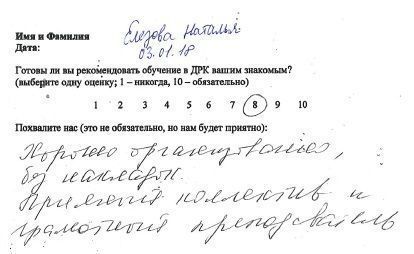 Имя и Фамилия Елезова Наталья
Дата: 03.01.18
Готовы ли вы рекомендовать обучение в ДРК вашим знакомым?
(выберите одну оценку; 1 – никогда, 10 – обязательно)
1 2 3 4 5 6 7 8 9 10
Похвалите нас (это не обязательно, но нам будет приятно):
Хорошо организованно,
без накладок.
Приятный коллектив и
грамотный преподаватель